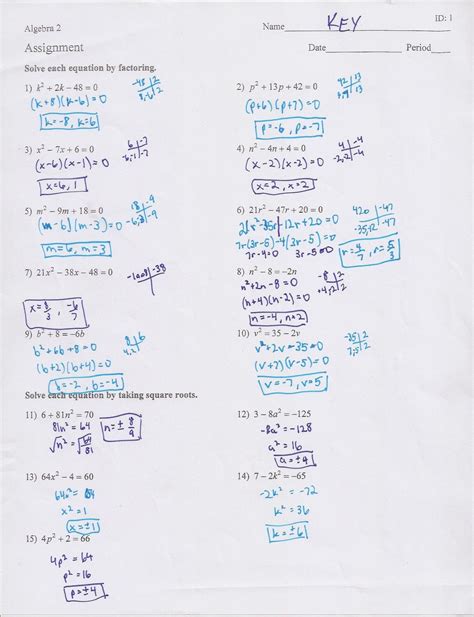 ID: 1
Algebra 2 Name KEY
Assignment Date Period
Solve each equation by factoring.
1) k² + 2k − 48 = 0
-48 | 2
8,-6 | 2
(k+8)(k-6)=0
k=-8, k=6
2) p² + 13p + 42 = 0
42 | 13
(p+6)(p+7)=0
p=-6, p=-7
3) x² − 7x + 6 = 0
6 | -7
-6,-1 | -7
(x-6)(x-1)=0
x=6, 1
4) n² − 4n + 4 = 0
4 | -4
-2,-2 | -4
(x-2)(x-2)=0
x=2, x=2
5) m² − 9m + 18 = 0
18 | -9
-6,-3 | -9
(m-6)(m-3)=0
m=6, m=3
6) 21r² − 47r + 20 = 0
420 | -47
-35,12 | -47
21r²-35r-12r+20=0
7r(3r-5)-4(3r-5)=0
7r-4=0 3r-5=0
r=4/7, r=5/3
7) 21x² − 38x − 48 = 0
-1008 | -38
x=8/3, -6/7
8) n² − 8 = −2n
-8 | 2
+4,-2 | 2
n²+2n-8=0
(n+4)(n-2)=0
n=-4, n=2
9) b² + 8 = −6b
8 | 6
4,2 |
b²+6b+8=0
(b+2)(b+4)=0
b=-2, b=-4
10) v² = 35 − 2v
-35 | 2
7,-5 | 2
v²+2v-35=0
(v+7)(v-5)=0
v=-7, v=5
Solve each equation by taking square roots.
11) 6 + 81n² = 70
81n²=64
√n²=√64/81
n=±8/9
12) 3 − 8a² = −125
-8a²=-128
a²=16
a=±4
13) 64x² − 4 = 60
64x²=64
x²=1
x=±1
14) 7 − 2k² = −65
-2k²=-72
k²=36
k=±6
15) 4p² + 2 = 66
4p²=64
p²=16
p=±4